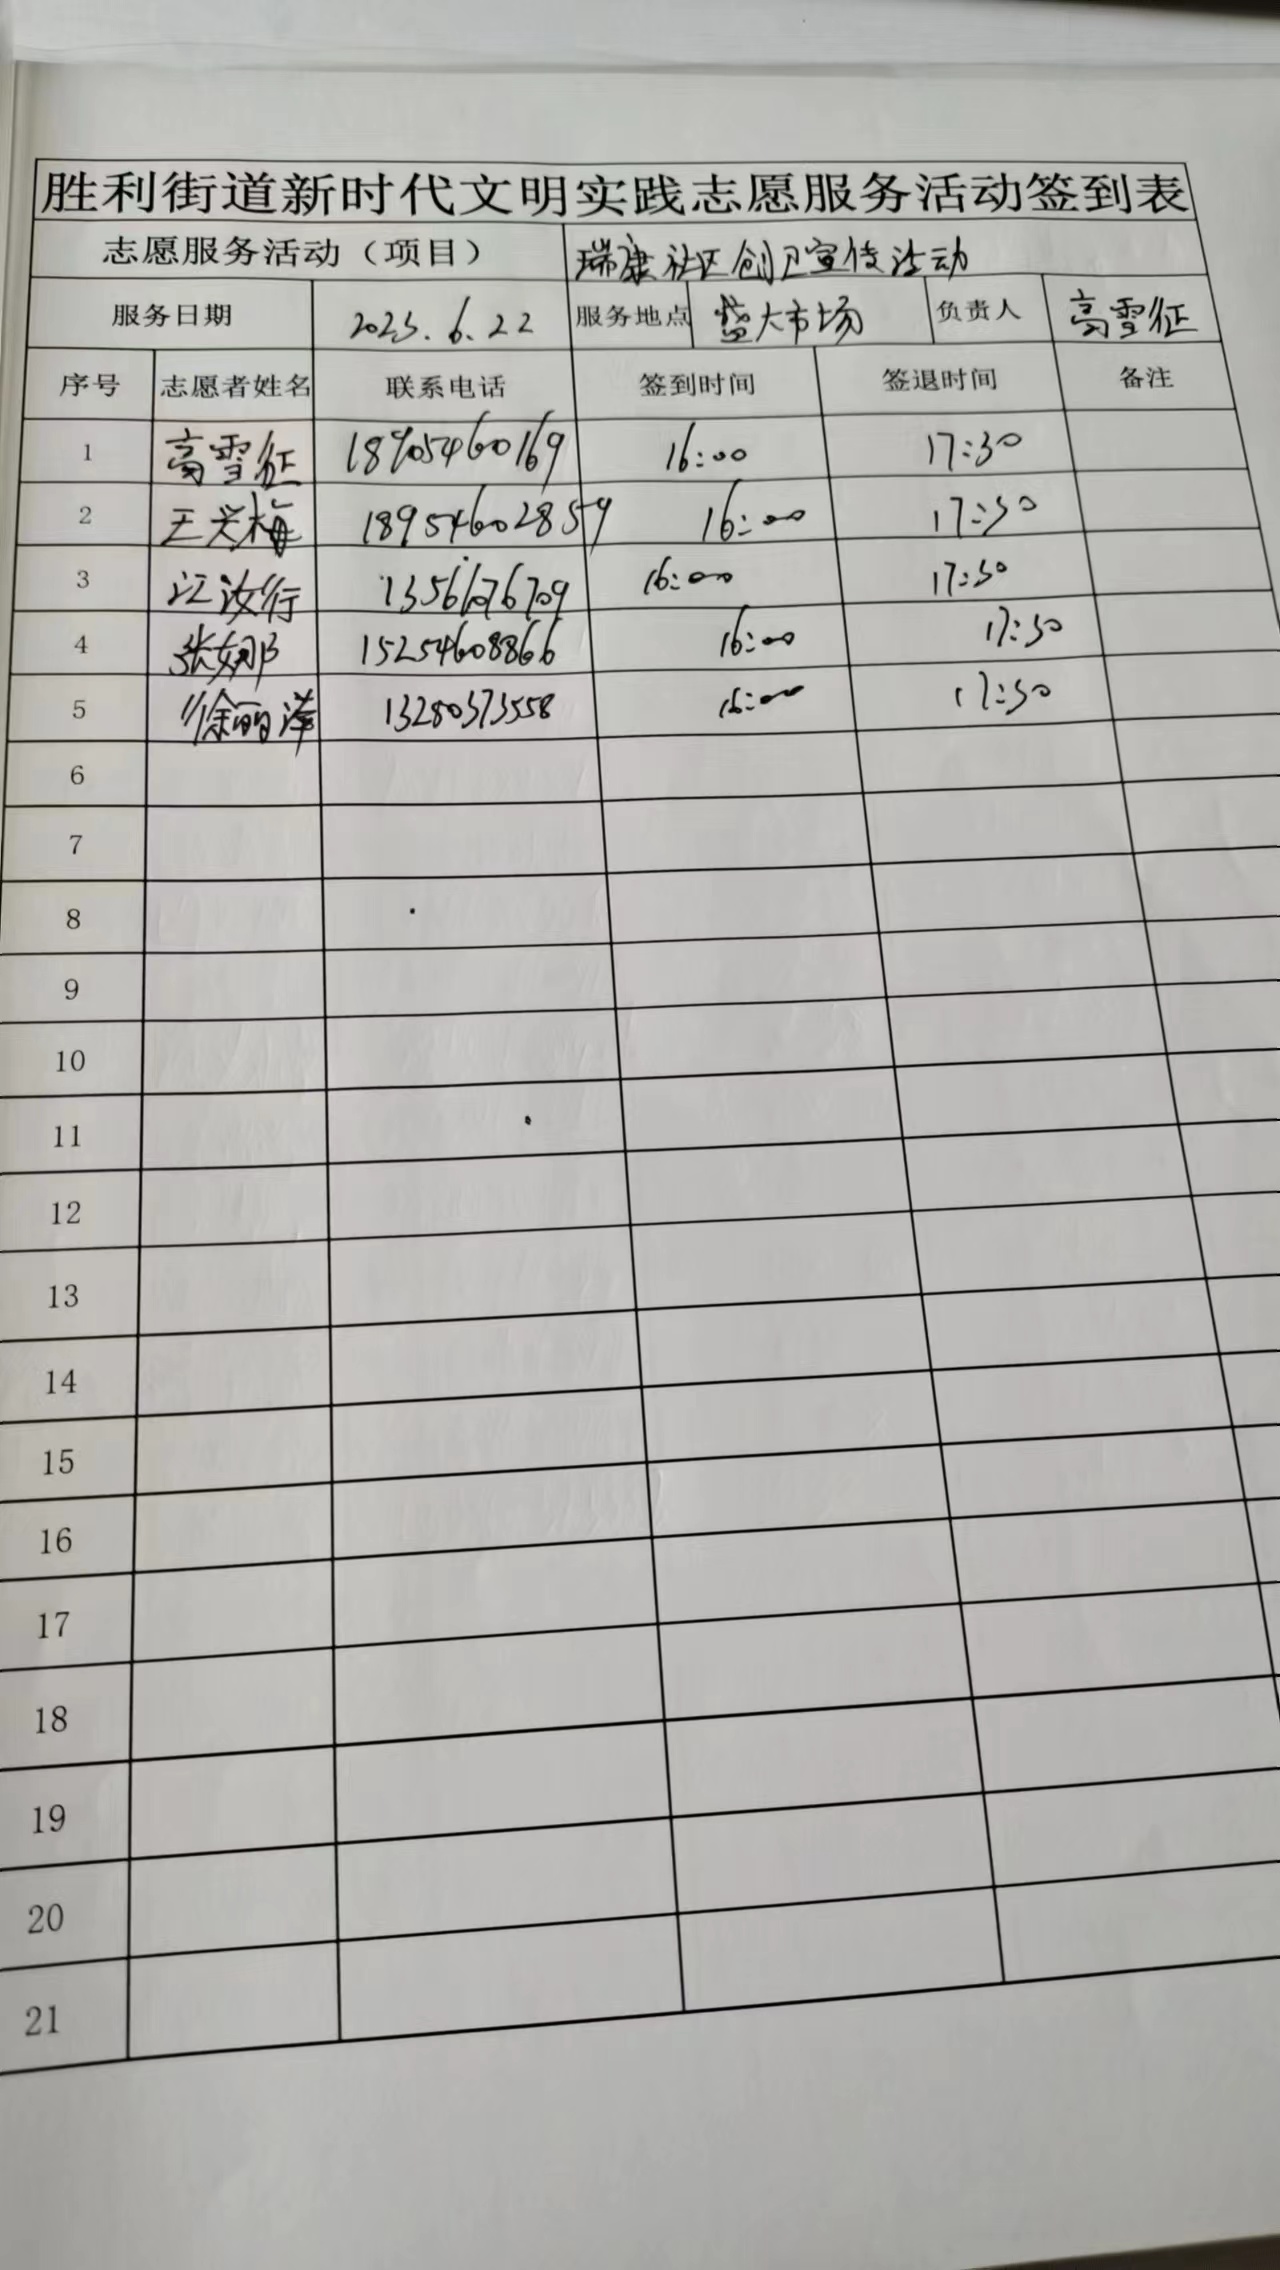 胜利街道新时代文明实践志愿服务活动签到表
志愿服务活动（项目） 瑞康社区创卫宣传活动
服务日期 2023.6.22 服务地点 盛大市场 负责人 高雪征
序号 志愿者姓名 联系电话 签到时间 签退时间 备注
1 高雪征 18905460169 16:00 17:30
2 王兴梅 18954602859 16:00 17:30
3 江汝行 16:00 17:30
4 张娜 15254608866 16:00 17:30
5 徐丽萍 13280373558 16:00 17:30
6
7
8
9
10
11
12
13
14
15
16
17
18
19
20
21